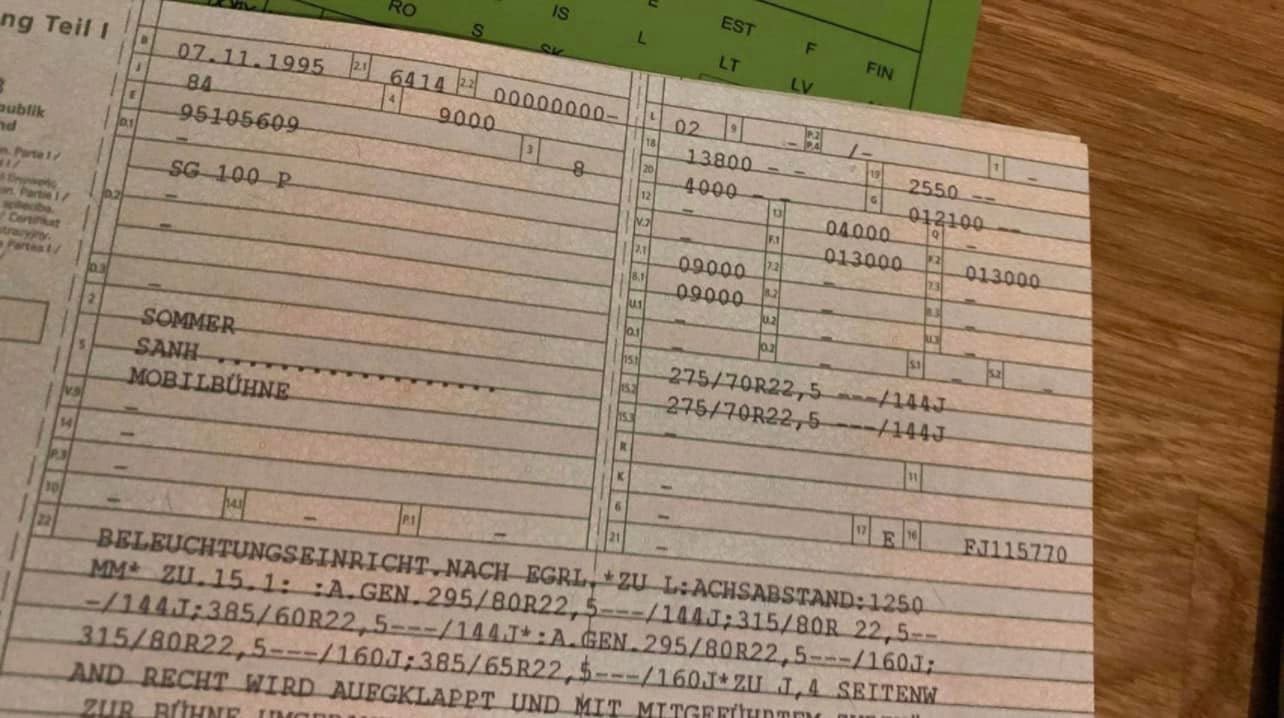 RO IS E EST F FIN
S SK L LT LV
ng Teil I
publik
nd
n. Parte I /
on. Partie I /
/ Certifikat
Partea I /
B 07.11.1995 2.1 6414 2.2 00000000-
J 84 4 9000
E 95105609 3 8
D.1 -
SG 100 P
D.2 -
-
D.3 -
2 SOMMER
5 SANH ..................
MOBILBÜHNE
V.9 -
14 -
P.3 -
10 - 14.1 - P.1 -
L 02 9 - P.2 P.4 /- T -
18 13800 - - 19 2550 --
20 4000 - - G 012100 --
12 - 13 04000 Q -
V.7 - F.1 013000 F.2 013000
7.1 09000 7.2 - 7.3 -
8.1 09000 8.2 - 8.3 -
U.1 - U.2 - U.3 -
O.1 - O.2 - S.1 - S.2 -
15.1 275/70R22,5 ---/144J
15.2 275/70R22,5 ---/144J
15.3 -
R - 11
K -
6 - 17 E 16 FJ115770
21 -
22 BELEUCHTUNGSEINRICHT.NACH EGRL.*ZU L:ACHSABSTAND:1250
MM* ZU.15.1: :A.GEN.295/80R22,5---/144J;315/80R 22,5--
-/144J;385/60R22,5---/144J*:A.GEN.295/80R22,5---/160J;
315/80R22,5---/160J;385/65R22,$---/160J*ZU J,4 SEITENW
AND RECHT WIRD AUFGKLAPPT UND MIT MITGEFÜHRTEM
ZUR BÜHNE